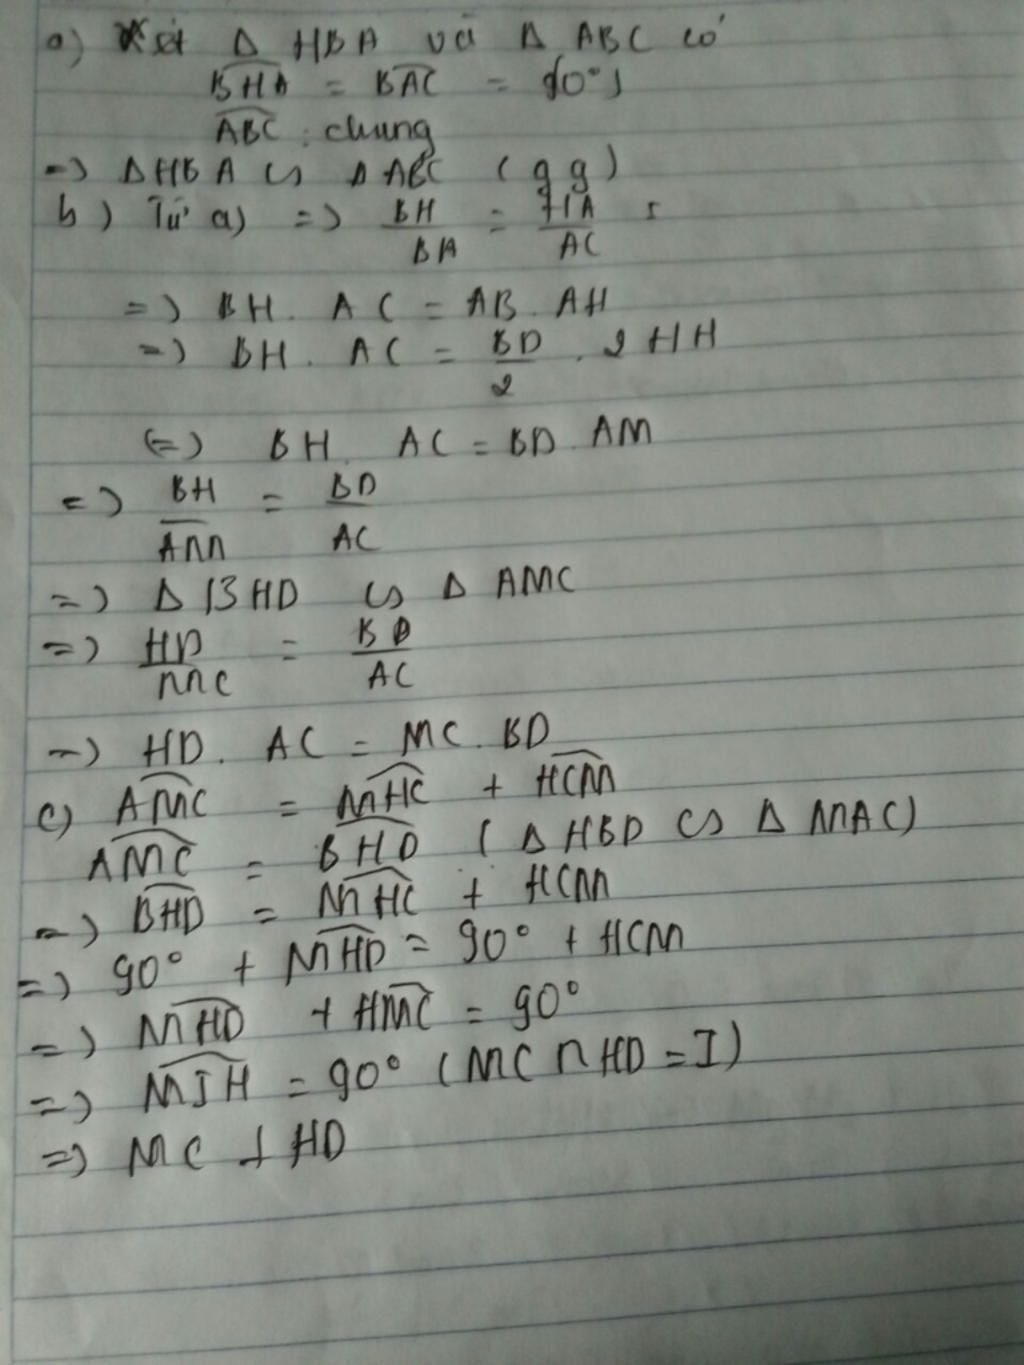 a) Xét Δ HBA và Δ ABC có
BHA = BAC = 90°
ABC : chung
=> ΔHBA ∽ ΔABC (gg)
b) Từ a) => BH/BA = HA/AC
=> BH . AC = AB . AH
=> BH . AC = BD/2 . 2 HH
<=> BH . AC = BD . AM
=> BH/AM = BD/AC
=> Δ BHD ∽ Δ AMC
=> HD/MC = BD/AC
=> HD . AC = MC . BD
c) AMC = MHC + HCM
AMC = BHD (ΔHBD ∽ Δ MAC)
=> BHD = MHC + HCM
=> 90° + MHD = 90° + HCM
=> MHD + HMC = 90°
=> MIH = 90° (MC ∩ HD = I)
=> MC ⊥ HD